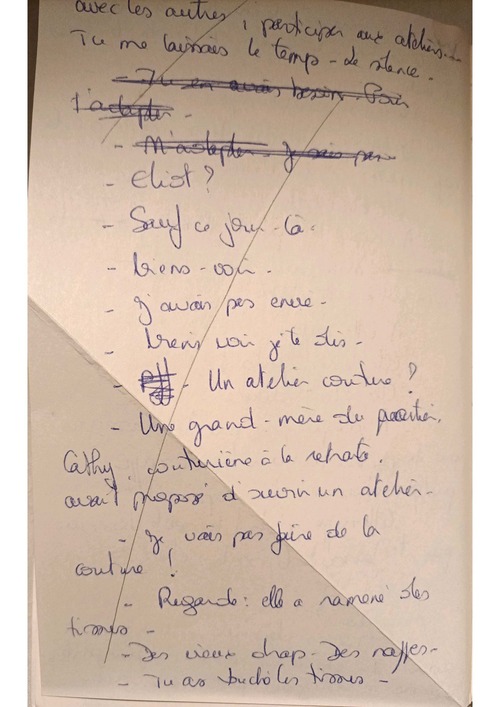 avec les autres, participer aux ateliers.
Tu me laissais le temps - le silence.
- Tu en avais besoin. Pour
t'adapter.
- M'adapter. Je sais pas
- Eliot ?
- Sauf ce jour-là.
- Viens-voir.
- J'avais pas envie.
- Viens voir je te dis.
- Un atelier couture ?
- Une grand-mère du quartier,
Cathy, couturière à la retraite,
avait proposé d'ouvrir un atelier.
- Je vais pas faire de la
couture !
- Regarde : elle a ramené des
tissus -
- Des vieux drap. Des nappes.
- Tu as touché les tissus -